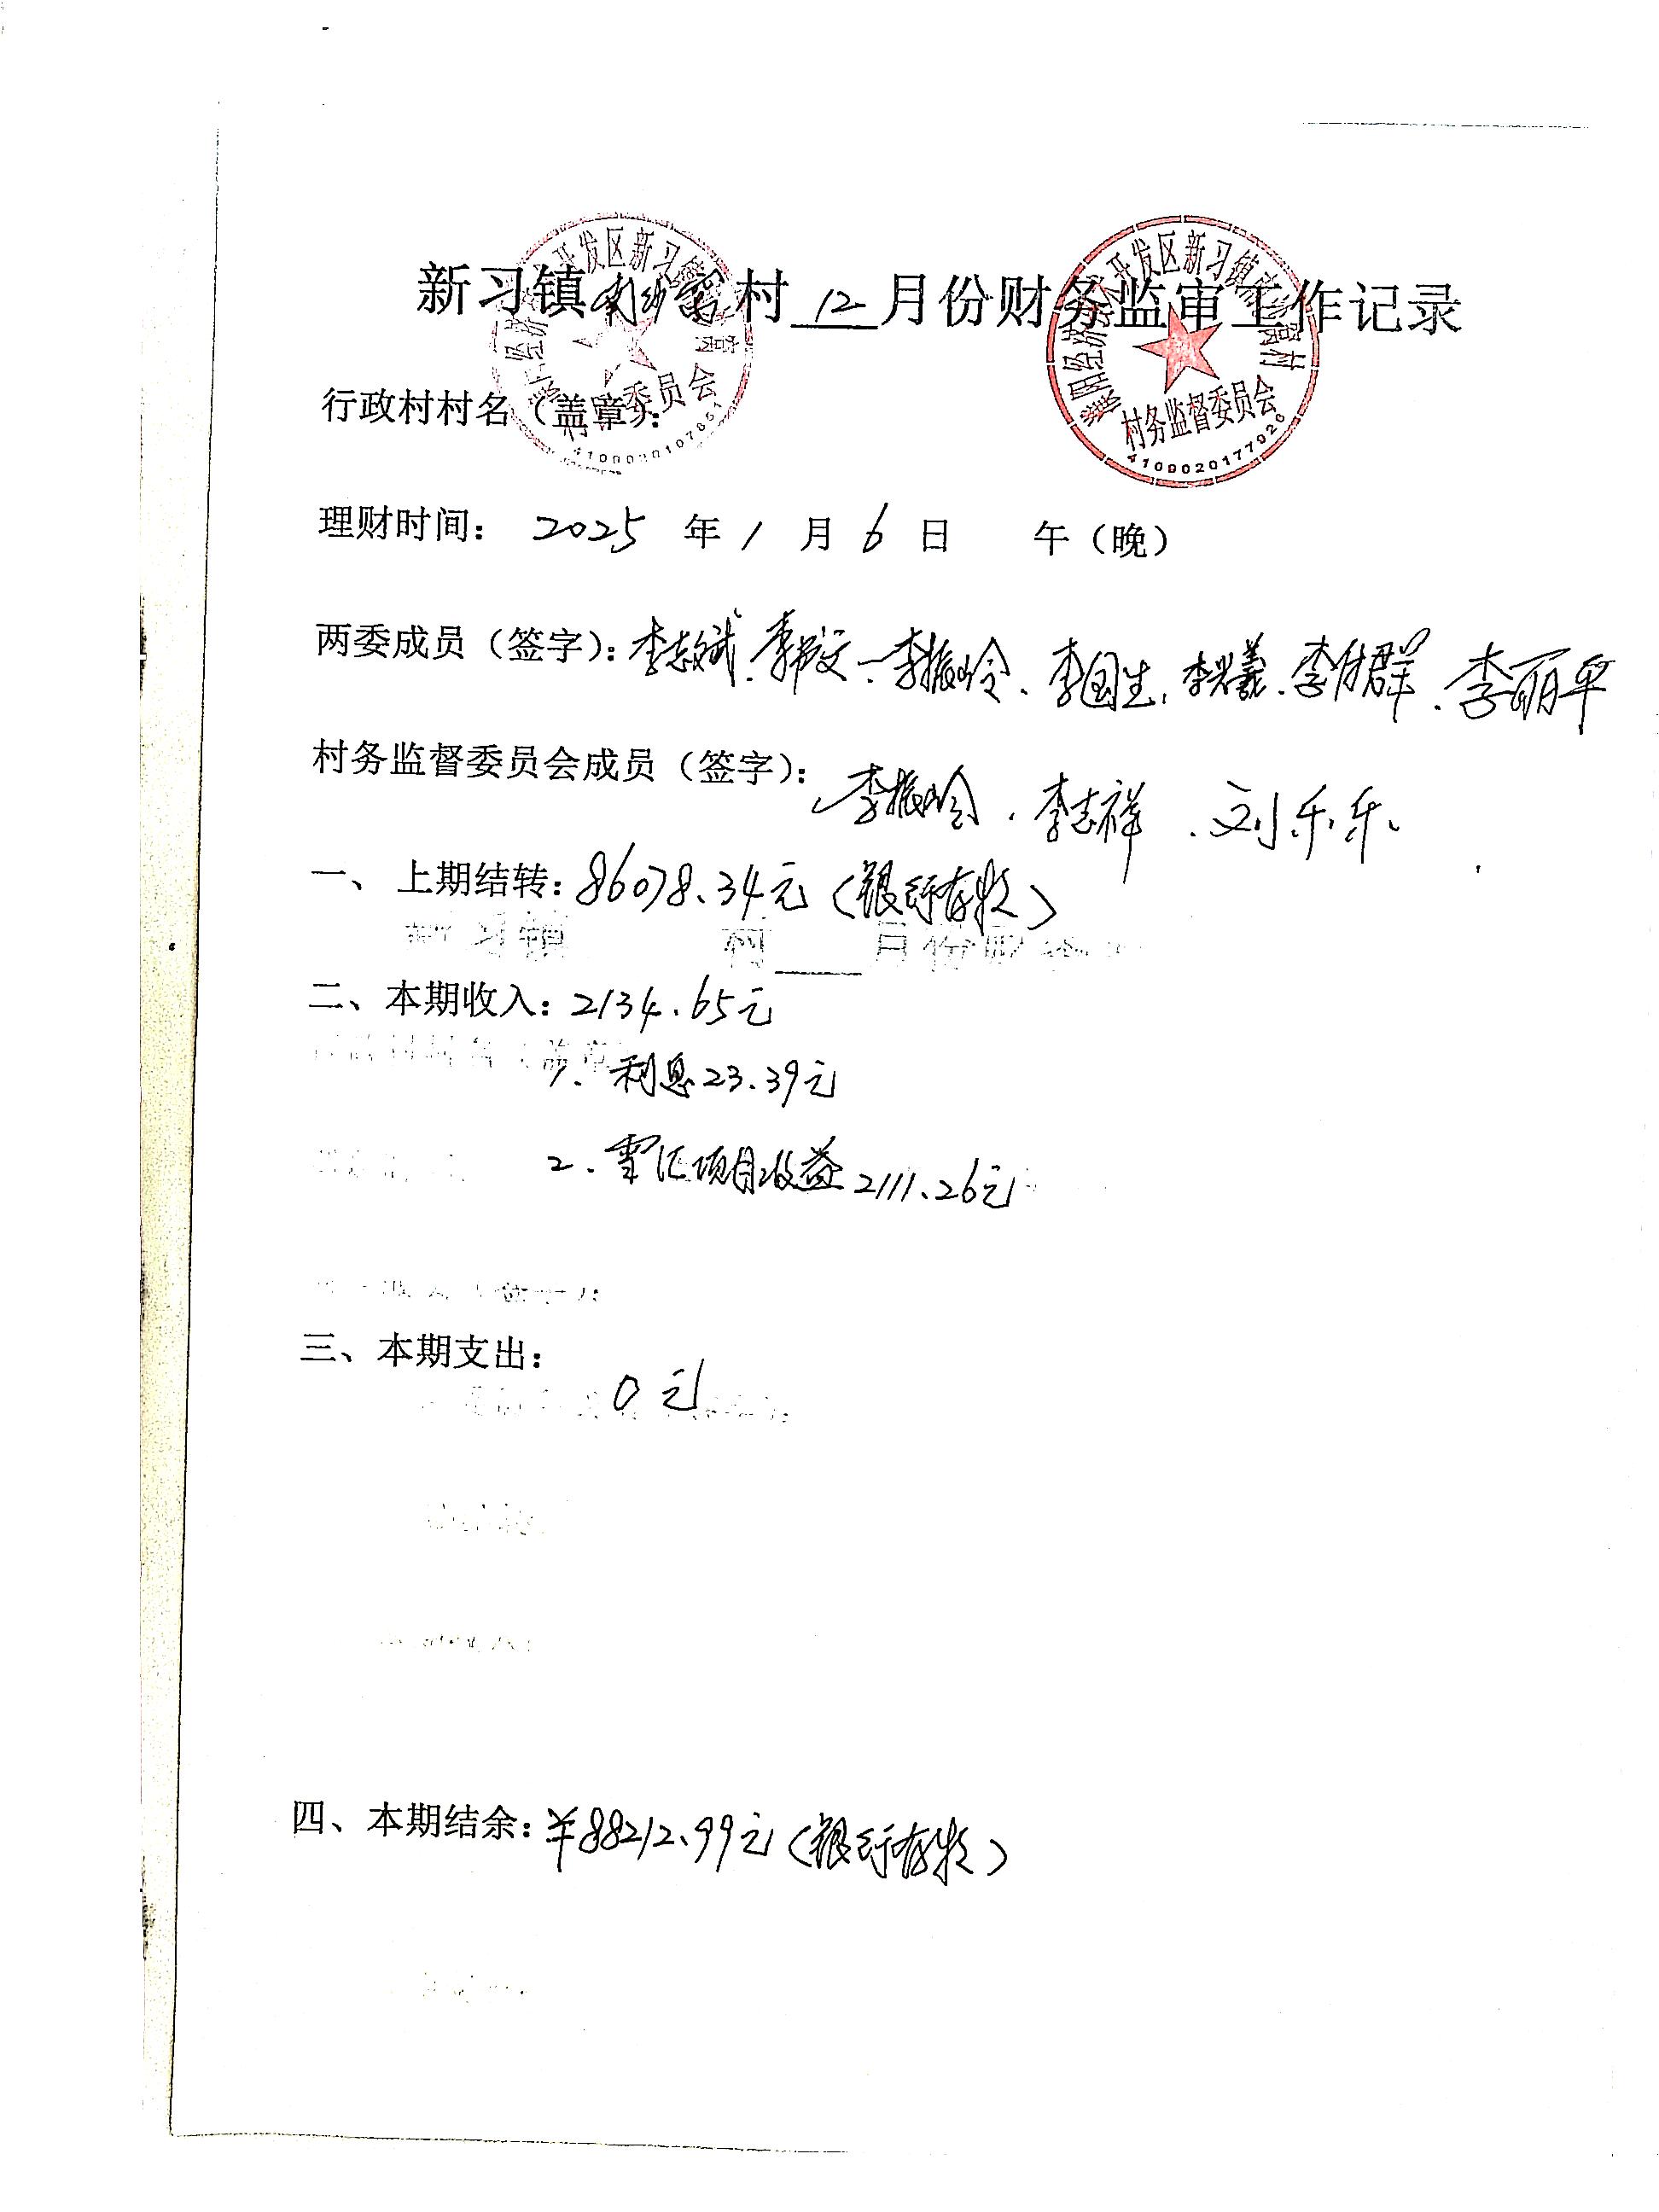 新习镇 村 12 月份财务监审工作记录
行政村村名（盖章）：
村务监督委员会
4109020177926
理财时间： 2025 年 1 月 6 日 午（晚）
两委成员（签字）：李志斌、李振玲、李国生、李兴義、李付群、李丽平
村务监督委员会成员（签字）：李振玲、李志祥、刘乐乐
一、上期结转：86078.34元（银行存款）
二、本期收入：2134.65元
1、利息23.39元
2、雪汇项目收益2111.26元
三、本期支出：
0元
四、本期结余：￥88212.99元（银行存款）